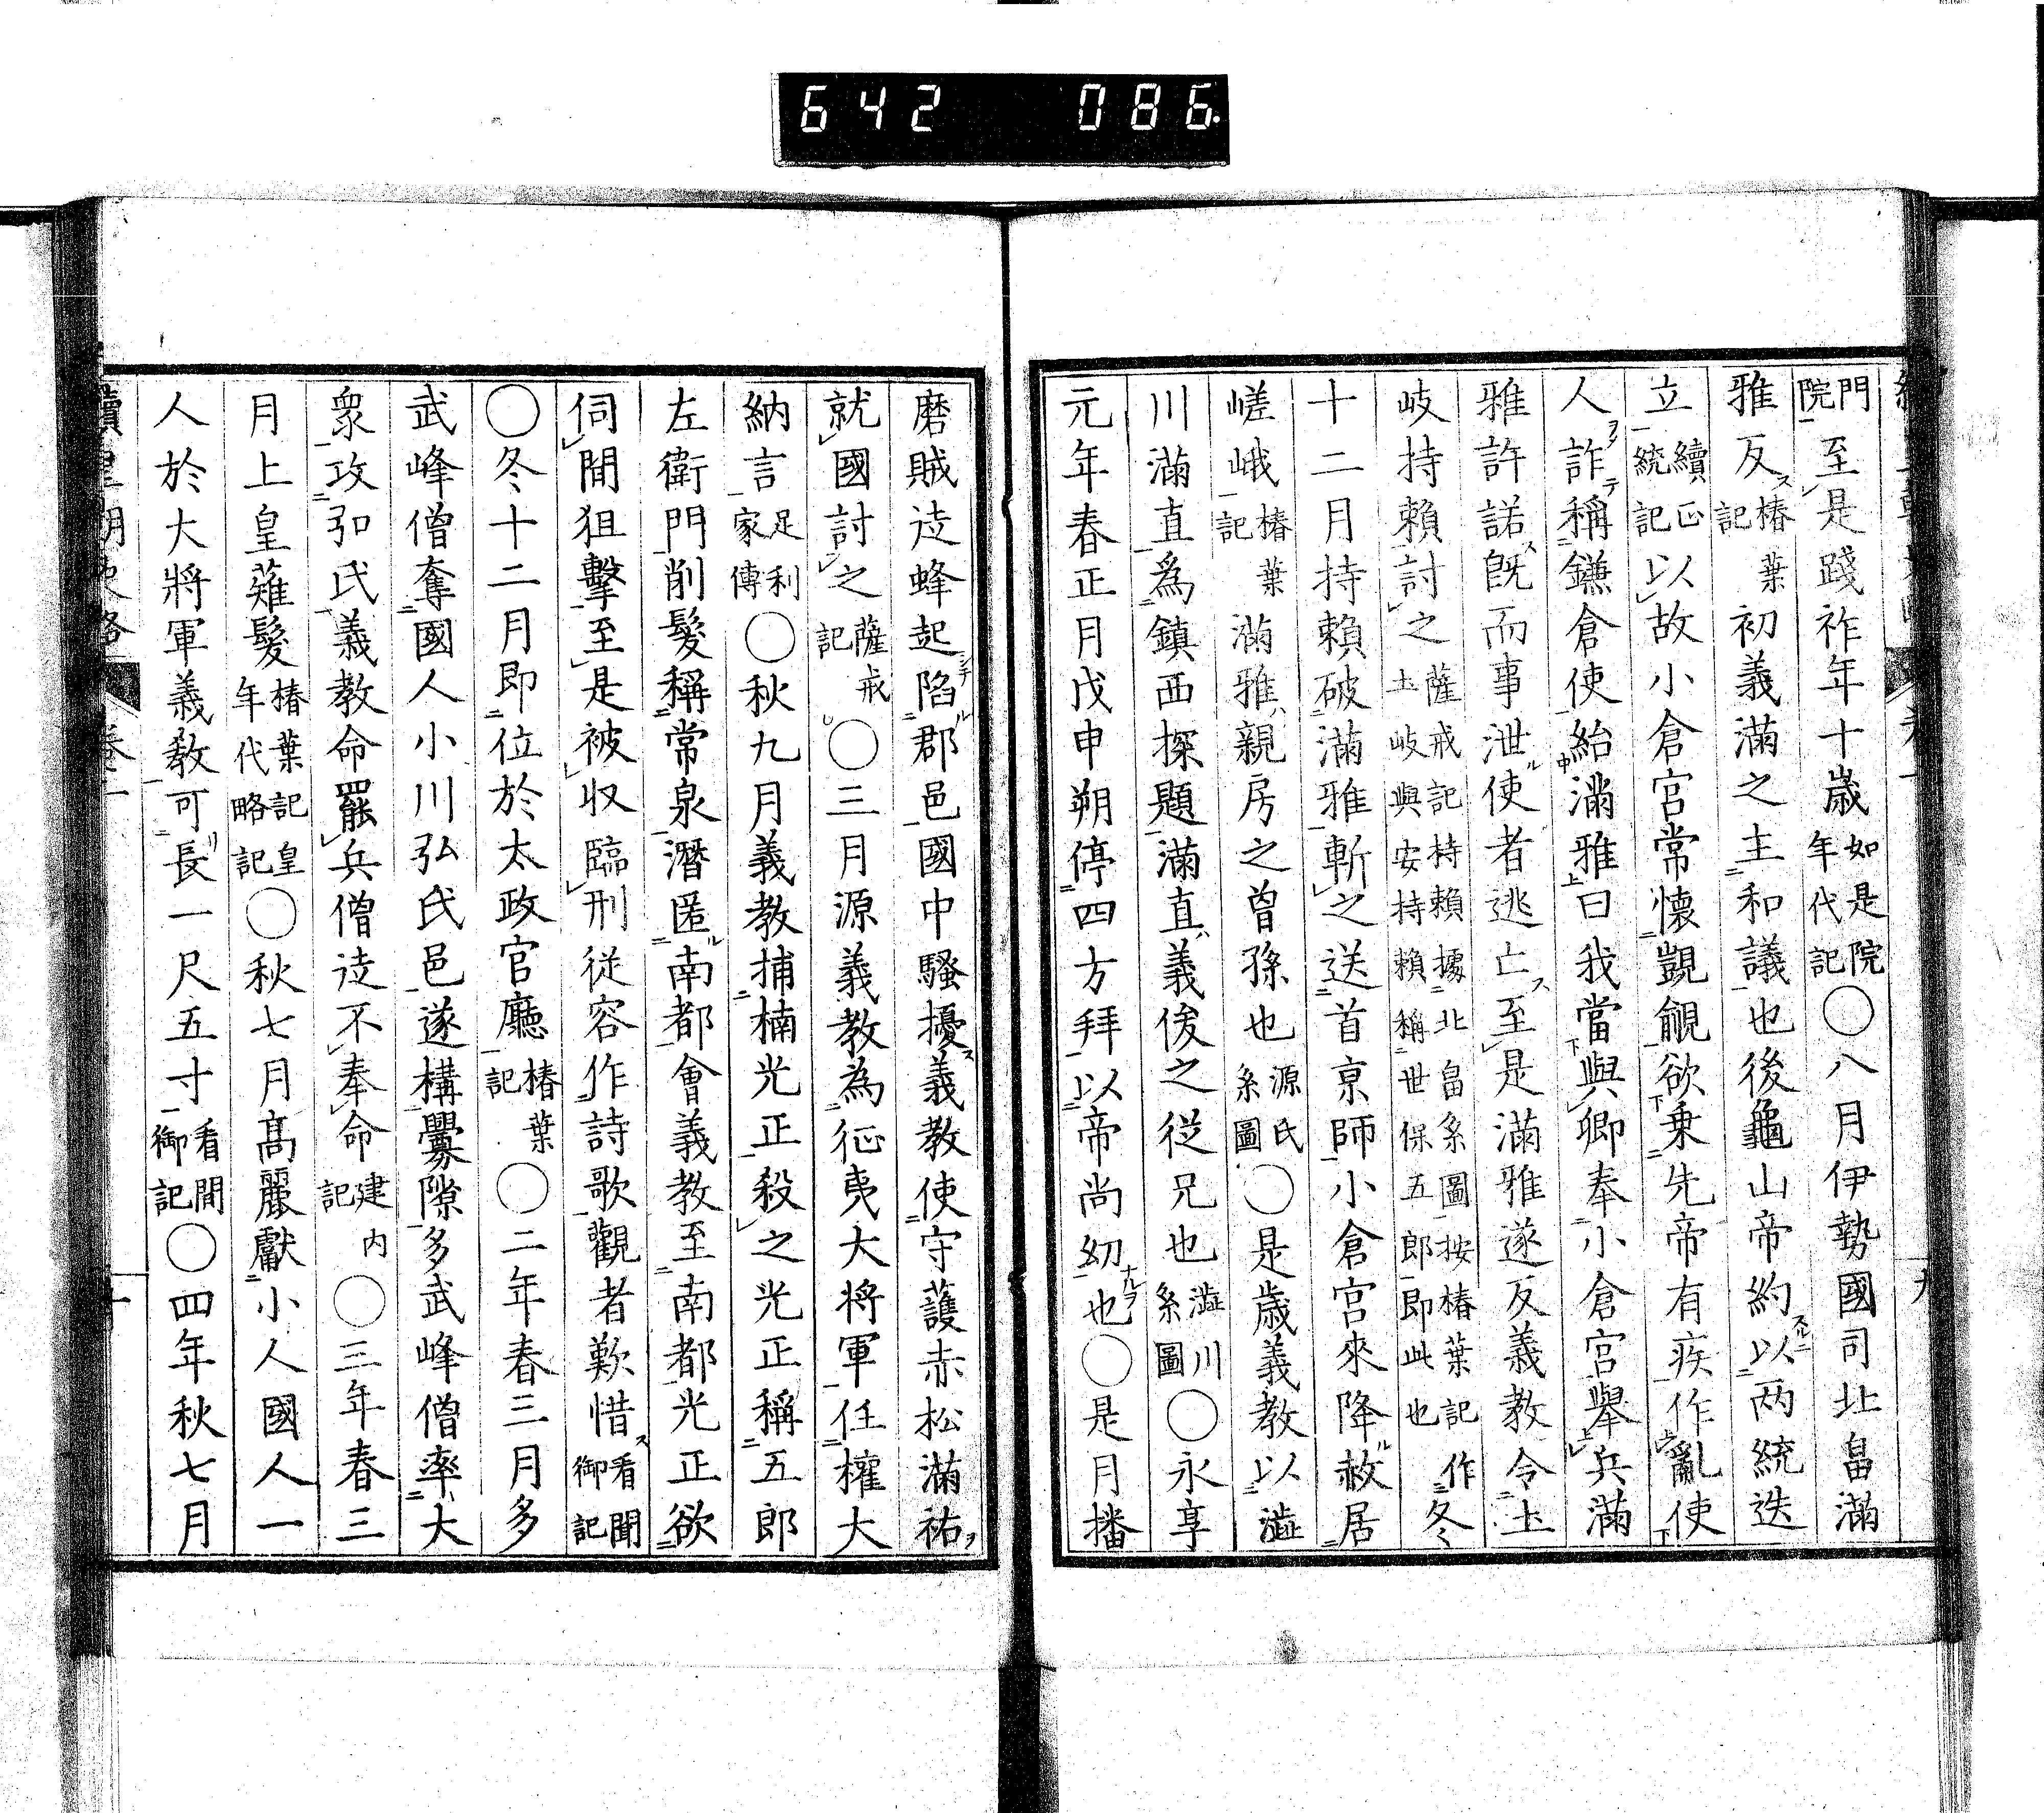 642 086.
門院至是踐祚年十歳如是院年代記〇八月伊勢國司北畠滿
雅反椿葉記初義滿之主和議也後龜山帝約以两統迭
立續正統記以故小倉宮常懷覬覦欲乗先帝有疾作亂使
人詐稱鎌倉使紿滿雅曰我當與卿奉小倉宮舉兵滿
雅許諾既而事泄使者逃亡至是滿雅遂反義教令土
岐持賴討之薩戒記持賴據北畠系圖按椿葉記作土岐與安持賴稱世保五郎即此也冬
十二月持賴破滿雅斬之送首京師小倉宮來降赦居
嵯峨椿葉記滿雅親房之曽孫也源氏系圖〇是歳義教以澁
川滿直為鎮西探題滿直義俊之從兄也澁川系圖〇永享
元年春正月戊申朔停四方拜以帝尚幼也〇是月播
磨賊徒蜂起陷郡邑國中騷擾義教使守護赤松滿祐
就國討之薩戒記〇三月源義教為征夷大將軍任權大
納言足利家傳〇秋九月義教捕楠光正殺之光正稱五郎
左衛門削髮稱常泉潛匿南都會義教至南都光正欲
伺間狙擊至是被収臨刑從容作詩歌觀者歎惜看聞御記
〇冬十二月即位於太政官廳椿葉記〇二年春三月多
武峰僧奪國人小川弘氏邑遂構釁隙多武峰僧率大
衆攻弘氏義教命罷兵僧徒不奉命建内記〇三年春三
月上皇薙髮椿葉記皇年代略記〇秋七月髙麗獻小人國人一
人於大將軍義教可長一尺五寸看聞御記〇四年秋七月